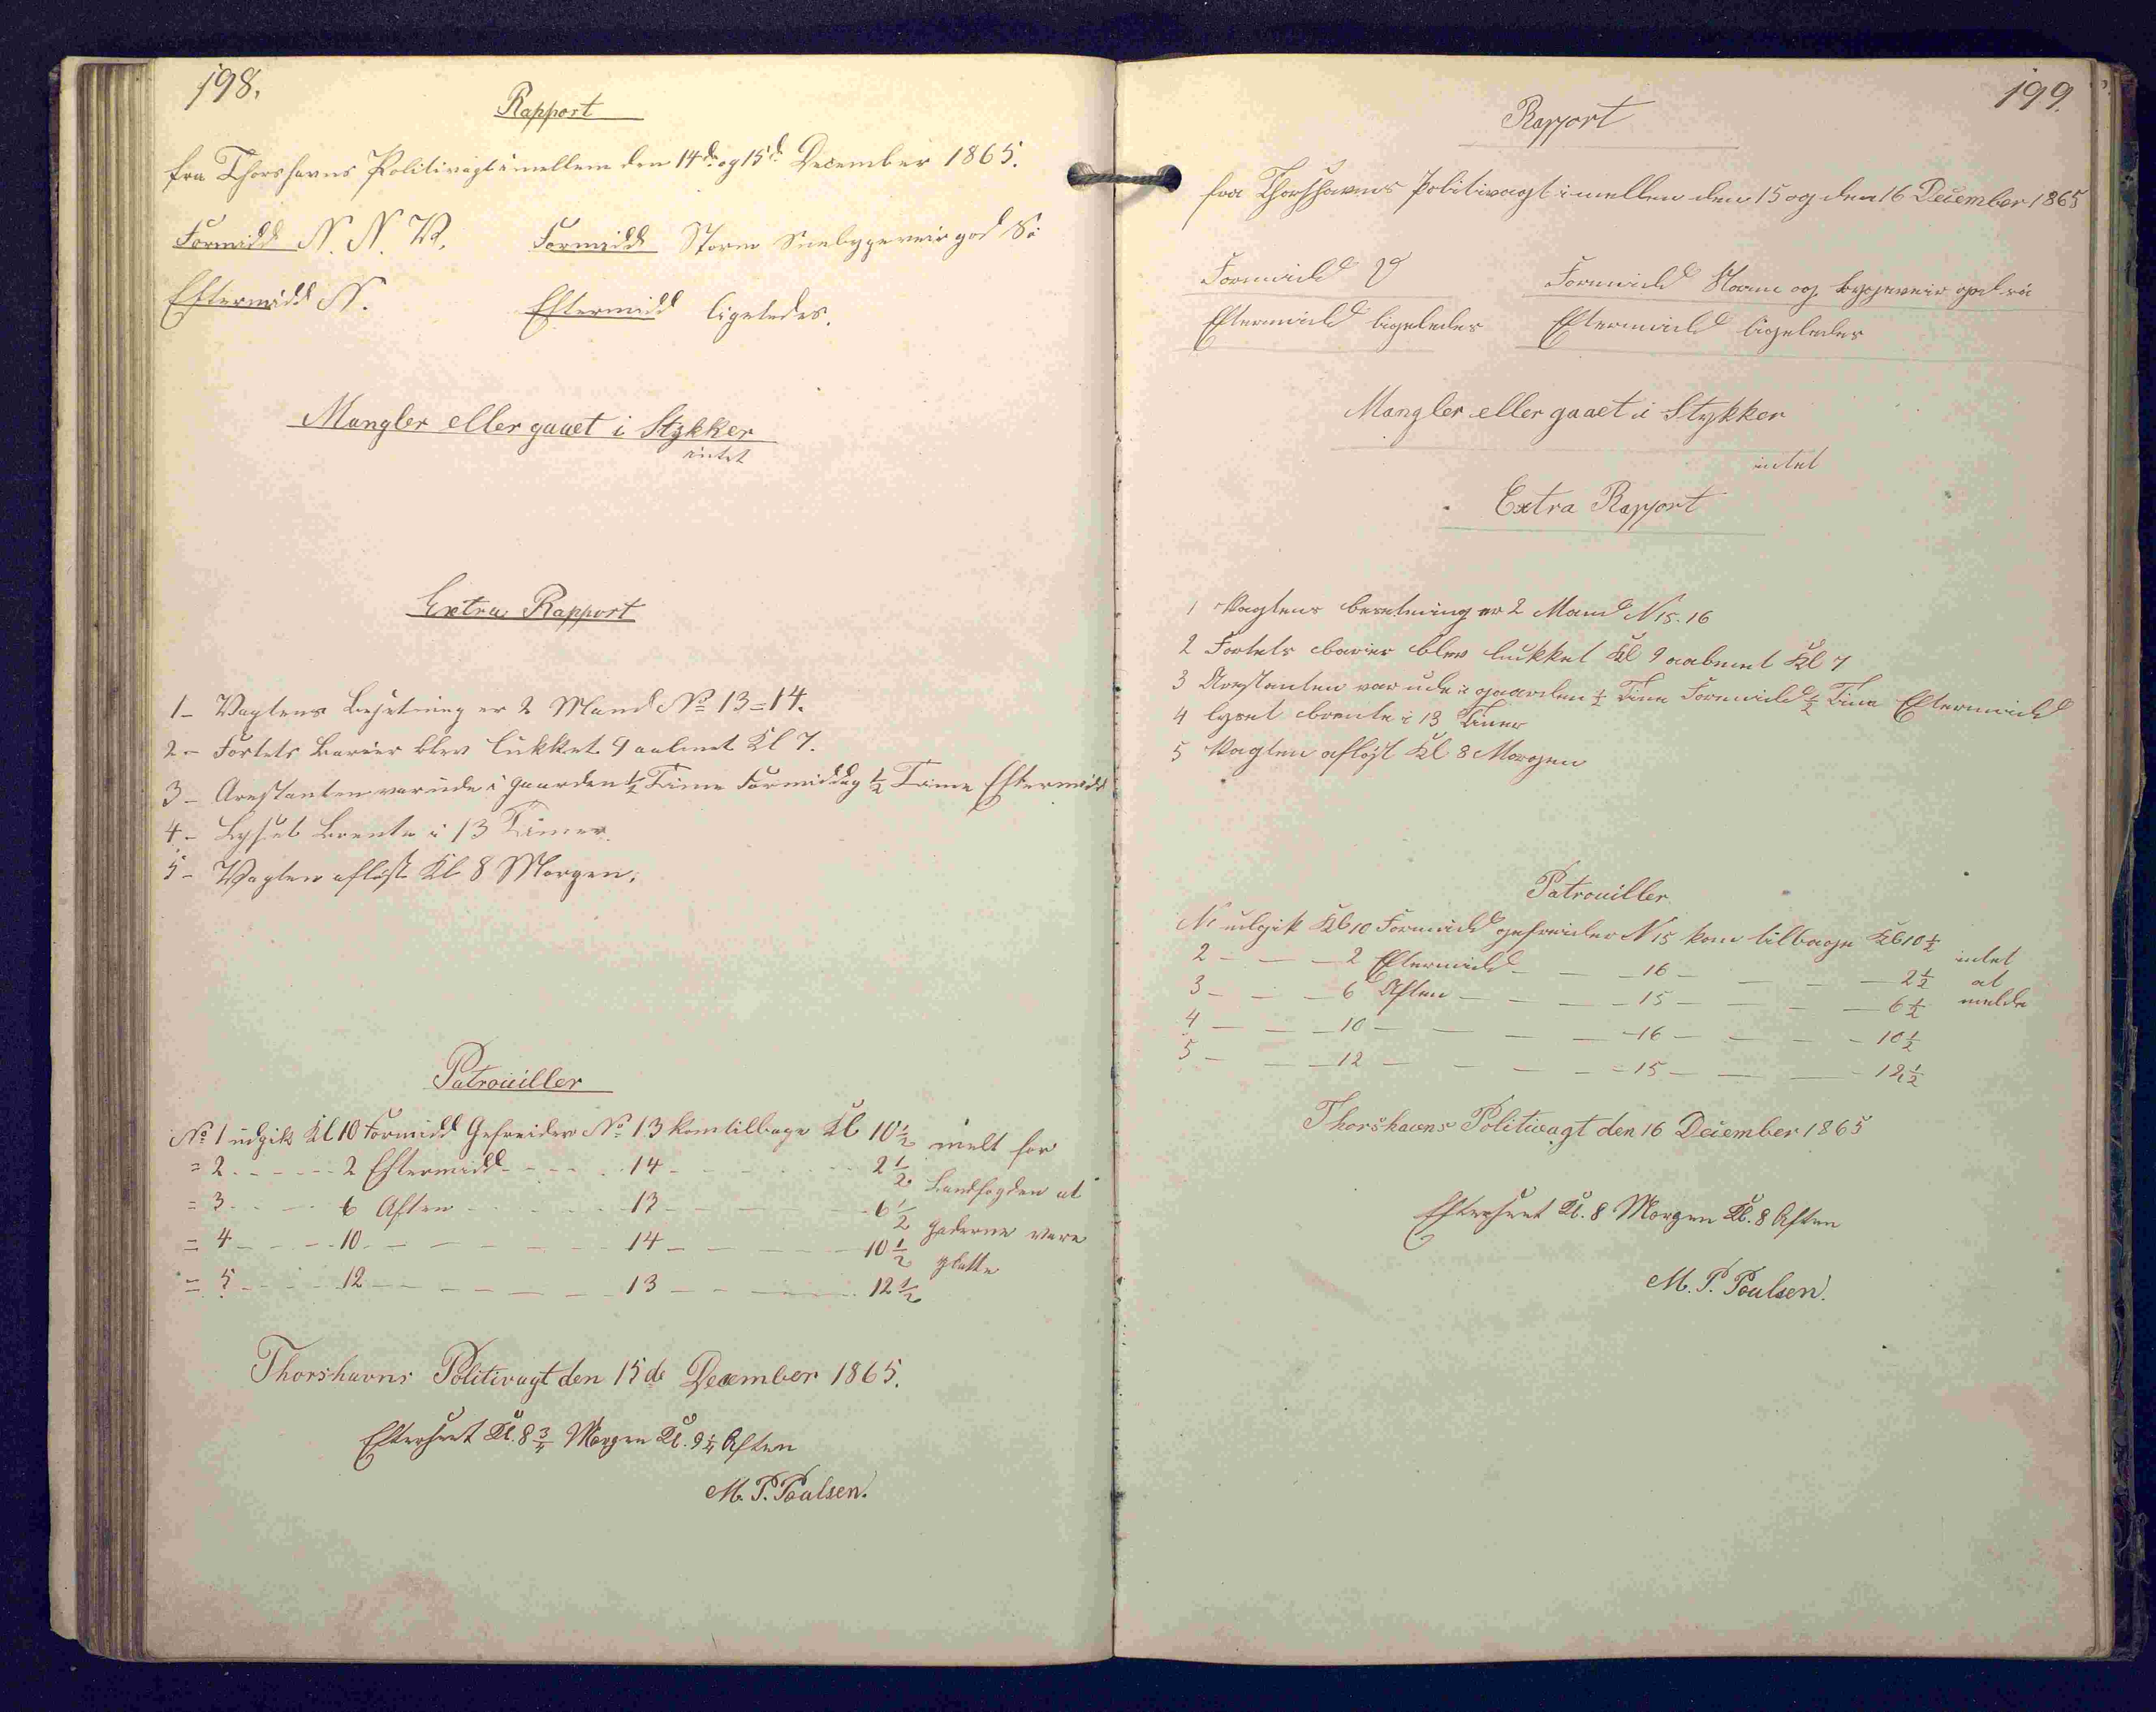 198.
Rapport
fra Thorshavns Politivagt imellem den 14de og 15de December 1865.
Formidd N. N. V. Formidd Storm Sneebygeveir god Sö
Eftermidd N. Eftermidd ligeledes.
Mangler eller gaaet i Stykker
intet
Extra Rapport
1 - Vagtens Besætning er 2 Mand No 13 = 14.
2 - Fortets Barier blev lukket 9 aabnet Kl 7.
3 - Arestanten var ude i Gaarden ½ Time Formiddag ½ Time Eftermidd
4 - Lyset brente i 13 Timer.
5 - Vagten aflöst Kl 8 Morgen.
Patrouiller
No 1 udgik Kl 10 Formidd Gefreider No 13 kom tilbage Kl 10½ melt for
= 2 - - - - 2 Eftermidd - - - - 14 - - - - 2½ Landfogden at
= 3 - - - - 6 Aften - - - - 13 - - - - 6½ gaderne vare
= 4 - - - - 10 - - - - 14 - - - - 10½ glatte
= 5 - - - - 12 - - - - 13 - - - - 12½
Thorshavns Politivagt den 15de December 1865.
Efterseet Kl. 8¾ Morgen Kl. 9¼ Aften
M. P. Poulsen.
199.
Rapport
fra Thorshavns Politivagt imellem den 15 og den 16 December 1865
Formidd V Formidd Storm og bygeveir god sö
Eftermidd ligeledes Eftermidd ligeledes
Mangler eller gaaet i Stykker
intet
Extra Rapport
1 Vagtens besetning er 2 Mand N 15. 16
2 Fortets barier blev lukket Kl 9 aabenet Kl 7
3 Arestanten var ude i gaarden ½ Time Formidd ½ Time Eftermidd
4 lyset brente i 13 Timer
5 Vagten aflöst Kl 8 Morgen
Patrouiller
N 1 udgik Kl 10 Formidd gefreider N 15 kom tilbage Kl 10½ intet
2 - - - 2 Eftermidd - - - 16 - - - - 2½ at
3 - - - 6 Aften - - - - 15 - - - - 6½ melde
4 - - - 10 - - - - 16 - - - - 10½
5 - - - 12 - - - - 15 - - - - 12½
Thorshavns Politivagt den 16 December 1865
Efterseet Kl. 8 Morgen Kl. 8 Aften
M. P. Poulsen.